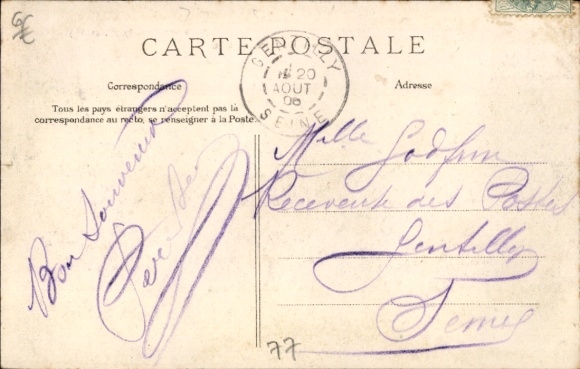 6€
CARTE POSTALE
Correspondance
Adresse
Tous les pays étrangers n'acceptent pas la
correspondance au recto, se renseigner à la Poste.
GENTILLY
20
AOUT
06
SEINE
Bon Souvenir
Melle
Receveuse des Postes
Gentilly
Seine
77